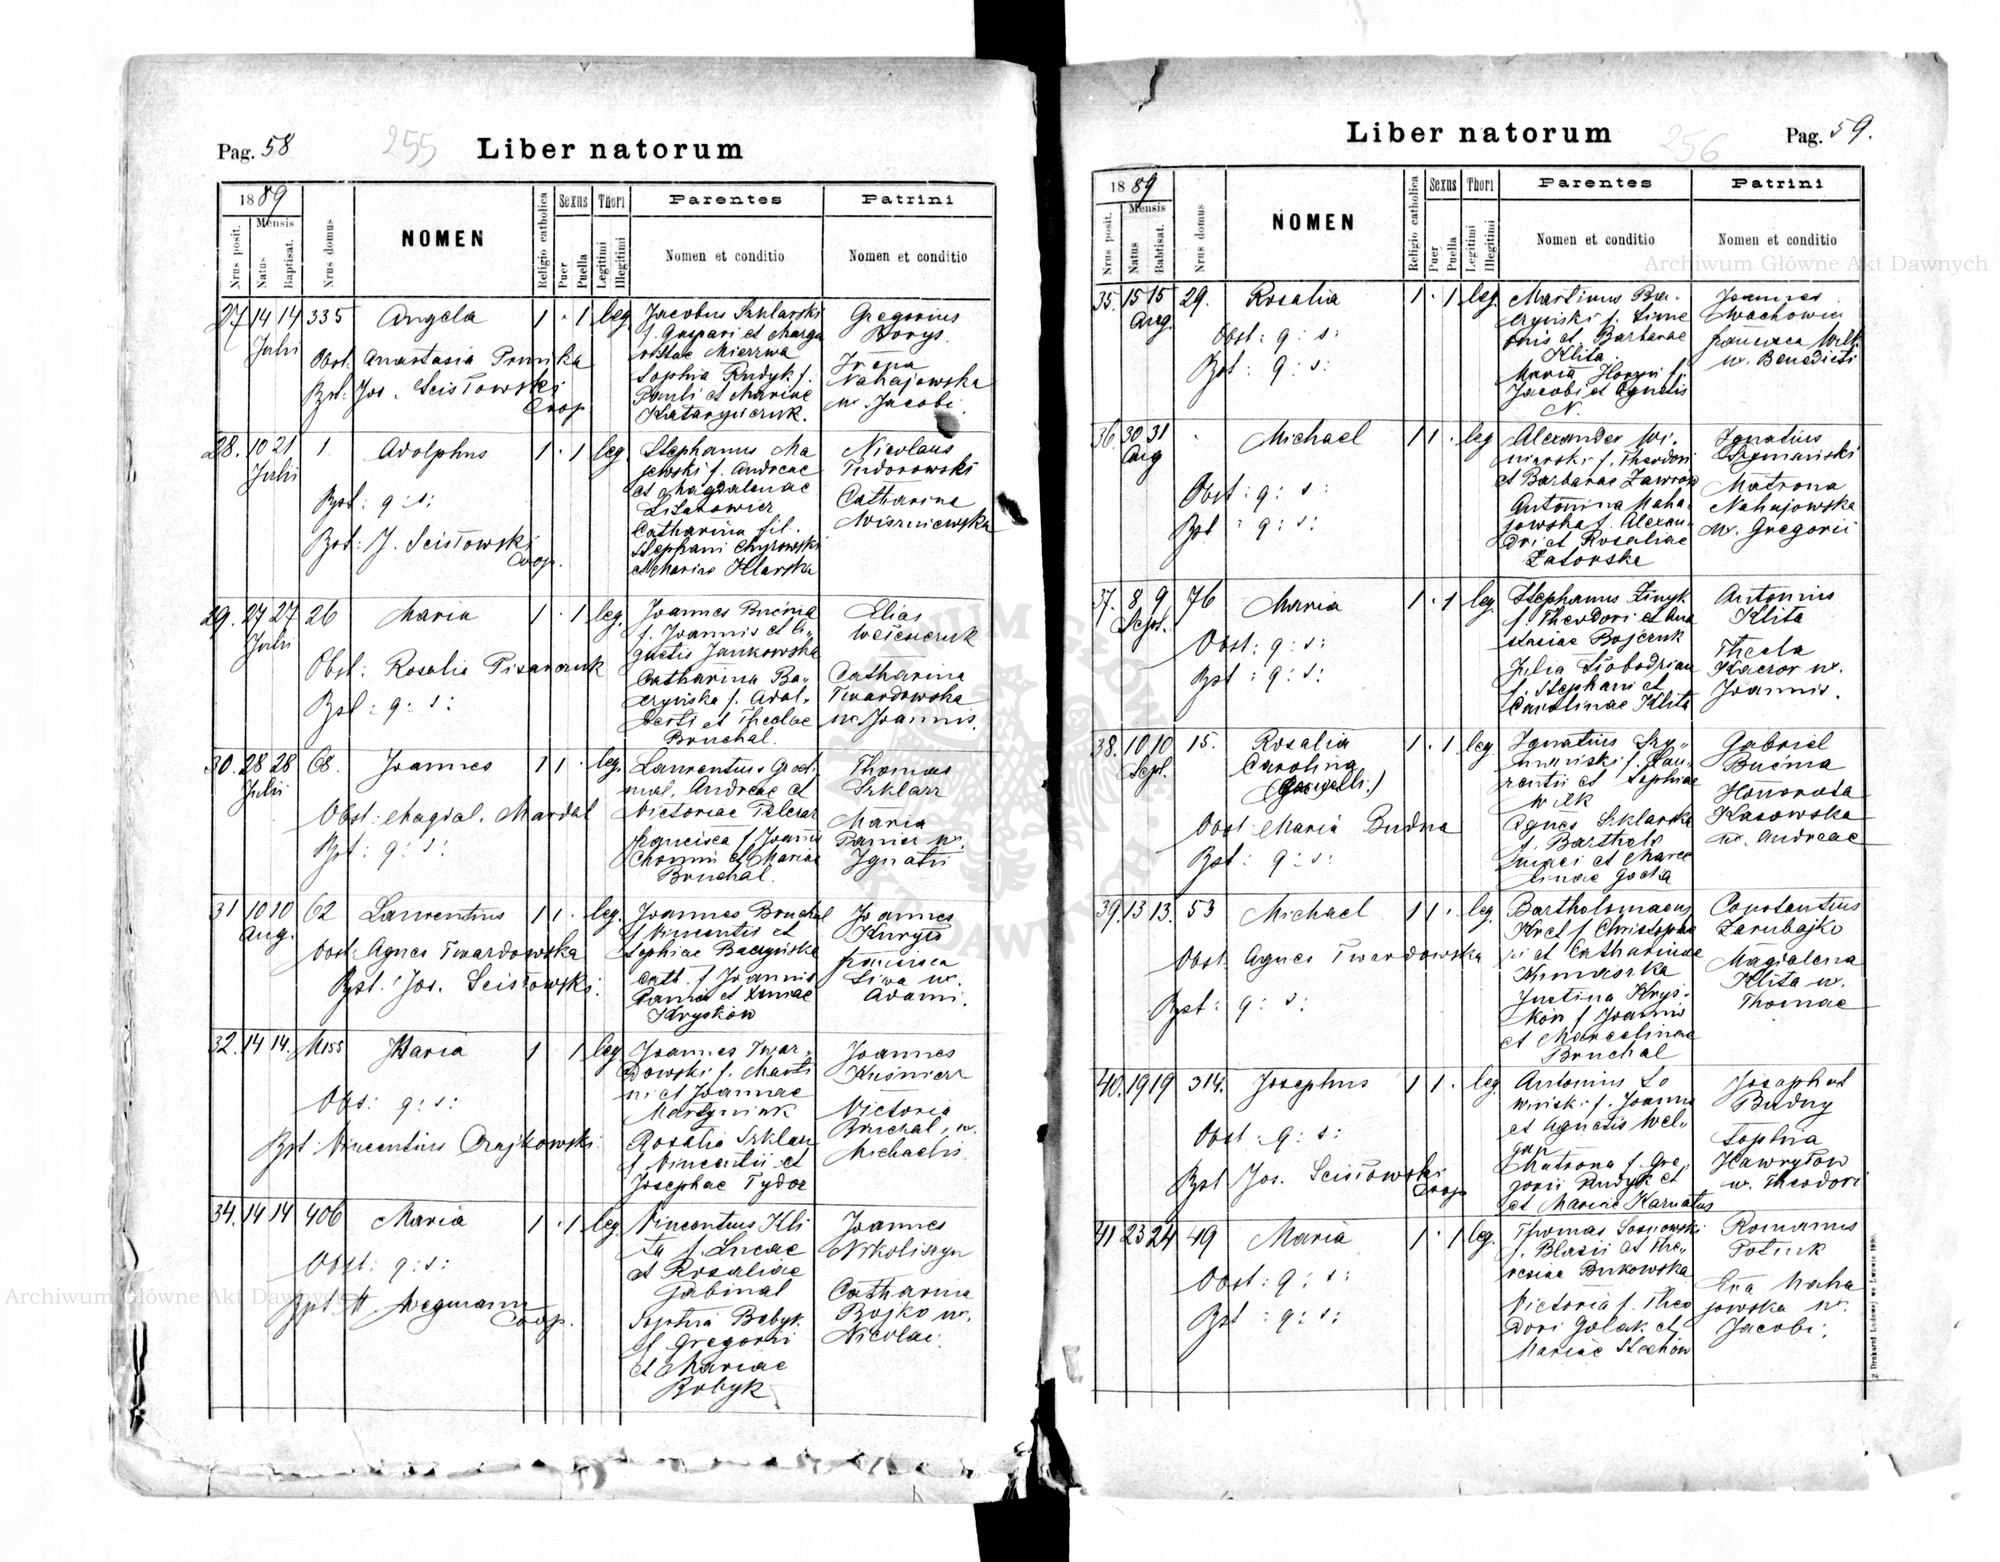 Pag. 58
255
Liber natorum
1889
Mensis
Nrus posit.
Natus
Baptisat.
Nrus domus
NOMEN
Religio catholica
Sexus
Puer
Puella
Thori
Legitimi
Illegitimi
Parentes
Nomen et conditio
Patrini
Nomen et conditio
27 14 14 335 Angela 1 · 1 leg Jacobus Szklarski Gregorius
Julii f. Gaspari et Marga Borys
Obst. Anastasia ritae Mierzwa
Sophia Rudyk f. Irena
Bpt. Jos. Scisłowski Pauli et Mariae Nahajowska
Coop Katarynczuk. ux. Jacobi.
28. 10 21 1. Adolphus 1 · 1 leg. Stephanus Ma Nicolaus
Julii jewski f. Andreae Tudorowski
et Magdalenae
Bpt: q: s: Catharina
Catharina fil. Wiszniewska
Bpt: J. Scisłowski Stephani
Coop. et Mariae
29. 27 27 26 Maria 1 · 1 leg. Joannes Bućma Elias
Julii f. Joannis et A„
gnetis Jankowska
Obst: Rosalia Pisarczuk Catharina Ba„ Catharina
czyńska f. Adal„ Twardowska
Bpt: q: s: berti et Theclae ux. Joannis.
Bruchal.
30. 28 28 68. Joannes 1 1 · leg. Laurentius Thomas
Julii Andreae et Szklarz
Obst: Magdal. Mardal Victoriae
Francisca f. Joannis Maria
Bpt: q: s: et Mariae Panier ux.
Bruchal. Ignatii
31 10 10 62 Laurentius 1 1 · leg. Joannes Bruchal Joannes
Aug. f. Vincentii et
Obst: Agnes Twardowska Sophiae Baczyńska Francisca
Cath. f. Joannis ux.
Bpt: Jos. Scisłowski: et Xeniae Adami.
Kryśków
32. 14 14. M155 Maria 1 1 leg Joannes Twar„ Joannes
dowski f. Marti Kuśnierz
ni et Joannae
Obs: q: s: Martyniuk Victoria
Rosalia Szklarz Bruchal, ux.
Bpt: Vincentius Czajkowski f. Vincentii et Michaelis
Josephae Tydor
34. 14 14 406 Maria 1 · 1 leg. Vincentius Kli Joannes
ta f. Lucae
Obst: q: s: et Rosaliae
Gabinal Catharina
Bpt. Coop. Sophia Bobyk Bojko ux.
f. Gregorii Nicolai.
et Mariae
Bobyk
Liber natorum
256
Pag. 59.
1889
Mensis
Nrus posit.
Natus
Babtisat.
Nrus domus
NOMEN
Religio catholica
Sexus
Puer
Puella
Thori
Legitimi
Illegitimi
Parentes
Nomen et conditio
Patrini
Nomen et conditio
35. 15 15 29. Rosalia 1 · 1 leg. Martinus Ba„ Joannes
Aug. czyński f. Sime Wachowicz
Obst: q: s: onis et Barbarae Francisca Wilk
Klita. ux. Benedicti
Bpt: q: s: Maria f.
Jacobi et Agnetis
N.
36. 30 31 · Michael 1 1 · leg Alexander Wi„ Ignatius
Aug niarski f. Theodori Szymański
et Barbarae Matrona
Obst: q: s: Antonina Naha„ Nahajowska
jowska f. Alexan„ ux. Gregorii
Bpt: q: s: dri et Rosaliae
Zatorska
37. 8 9 76 Maria 1 · 1 leg. Stephanus Antonius
Sept. f. Theodori et Ana Klita
Obst: q: s: stasiae Bojczuk Thecla
Julia Słobodzian Kaczor ux.
Bpt: q: s: f. Stephani et Joannis.
Carolinae Klita
38. 10 10 15. Rosalia 1 · 1 leg. Ignatius Szy„ Gabriel
Sept. Carolina mański f. Lau„ Bućma
(Gemelli.) rentii et Sophiae Honorata
Wilk Kasowska
Obst: Maria Budna Agnes Szklarska ux. Andreae
f. Bartholo
Bpt: q: s: maei et Marce
linae
39. 13 13. 53 Michael 1 1 · leg. Bartholomaeus Constantius
f. Christopho Zarubajko
Obst. Agnes Twardowska ri et Catharinae Magdalena
Klita ux.
Bpt: q: s: Justina Kryś„ Thomae
ków f. Joannis
et Marcelinae
Bruchal
40. 19 19 314. Josephus 1 1 · leg Antonius Lo Josaphat
wiński f. Joannis Budny
Obst: q: s: et Agnetis Wel„ Sophia
Matrona f. Gre„ Hawryłow
Bpt. Jos. Scisłowski gorii Rudyk et ux. Theodori
Coop et Mariae Karnatus
41 23 24 49 Maria 1 · 1 leg. Thomas Sosnowski Romanus
f. Blasii et The„
Obst: q: s: resiae Bukowska Eva Naha
Victoria f. Theo jowska ux.
Bpt: q: s: dori Golak et Jacobi.
Mariae Stachów
Z Drukarni Ludowej we Lwowie 1890.
Archiwum Główne Akt Dawnych
Archiwum Główne Akt Dawnych
ARCHIWUM GŁÓWNE AKT DAWNYCH